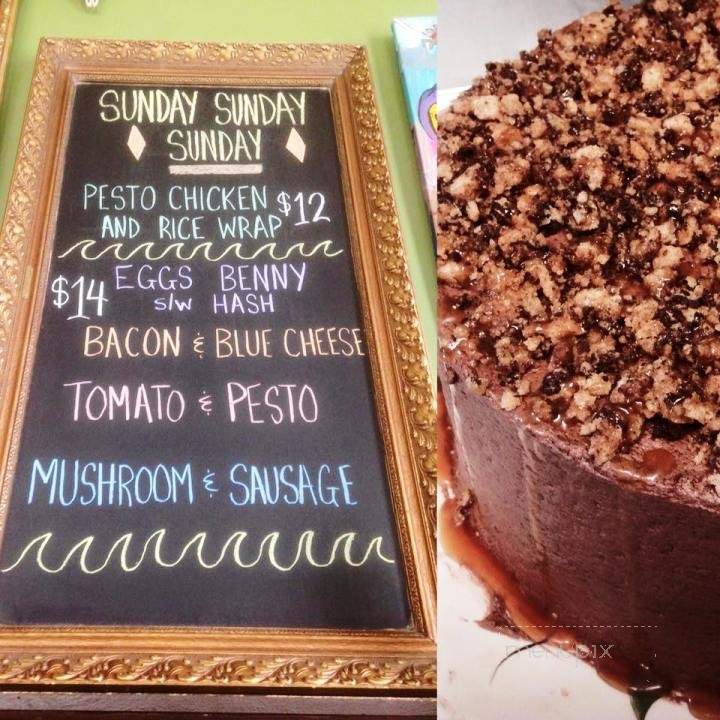 SUNDAY SUNDAY
SUNDAY
PESTO CHICKEN $12
AND RICE WRAP
$14 EGGS BENNY
s/w HASH
BACON & BLUE CHEESE
TOMATO & PESTO
MUSHROOM & SAUSAGE